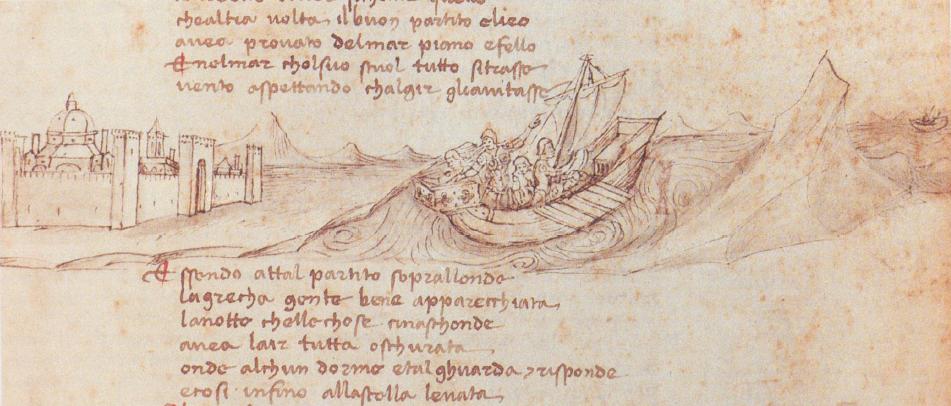 chealtra volta il buon partito elieo
avea provato delmar piano efello
Enelmar cholsuo stuol tutto sitrasse
vento aspettando chalgir gliaiutasse
Essendo attal partito soprallonde
lagrecha gente bene apparecchiata
lanotte chelle chose cinaschonde
avea lair tutta oschurata
onde alchun dorme etal ghuarda 7 risponde
ecosi infino allastella levata